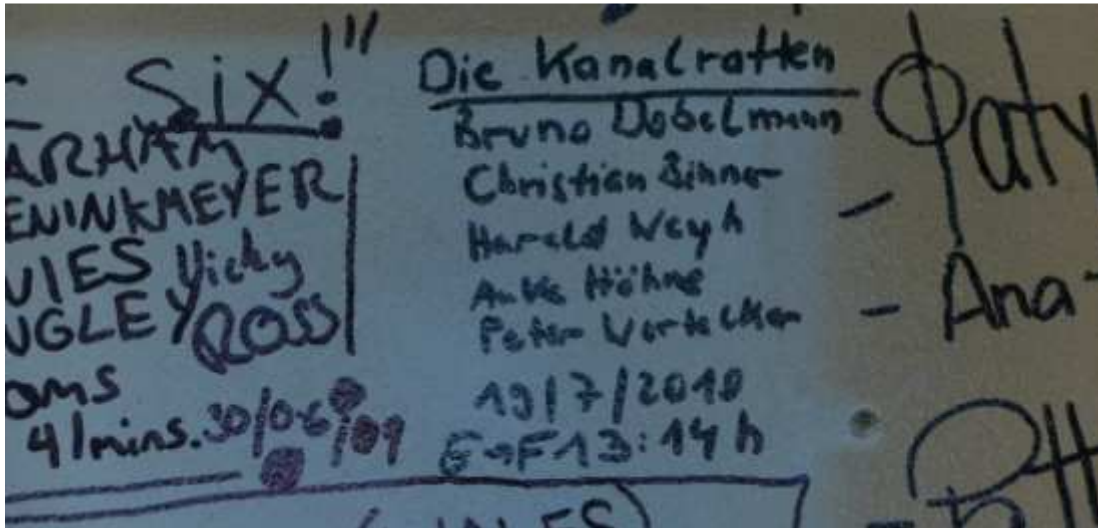 Six!"
ARHAM
ENINKMEYER
VIES Vicky
NGLEY ROSS
oms
41mins. 30/06/09
Die Kanalratten
Bruno Dobelmann
Christian Zihner
Harald Weyh
Anke Höhne
Peter
19/7/2010
E→F 13:14 h
Paty
- Ana